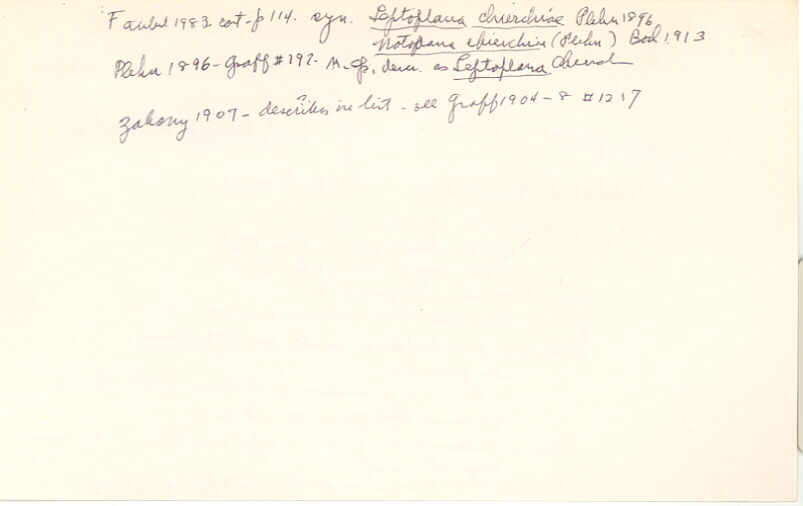 Faubel 1983 cat-p 114. syn. Leptoplana chierchiae Plehn 1896,
Notoplana chierchiae (Plehn) Bock 1913
Plehn 1896 - Graff #192. n. sp., descr. as Leptoplana chierch
Zakony 1907 - describes in list - see Graff 1904-8 #1217